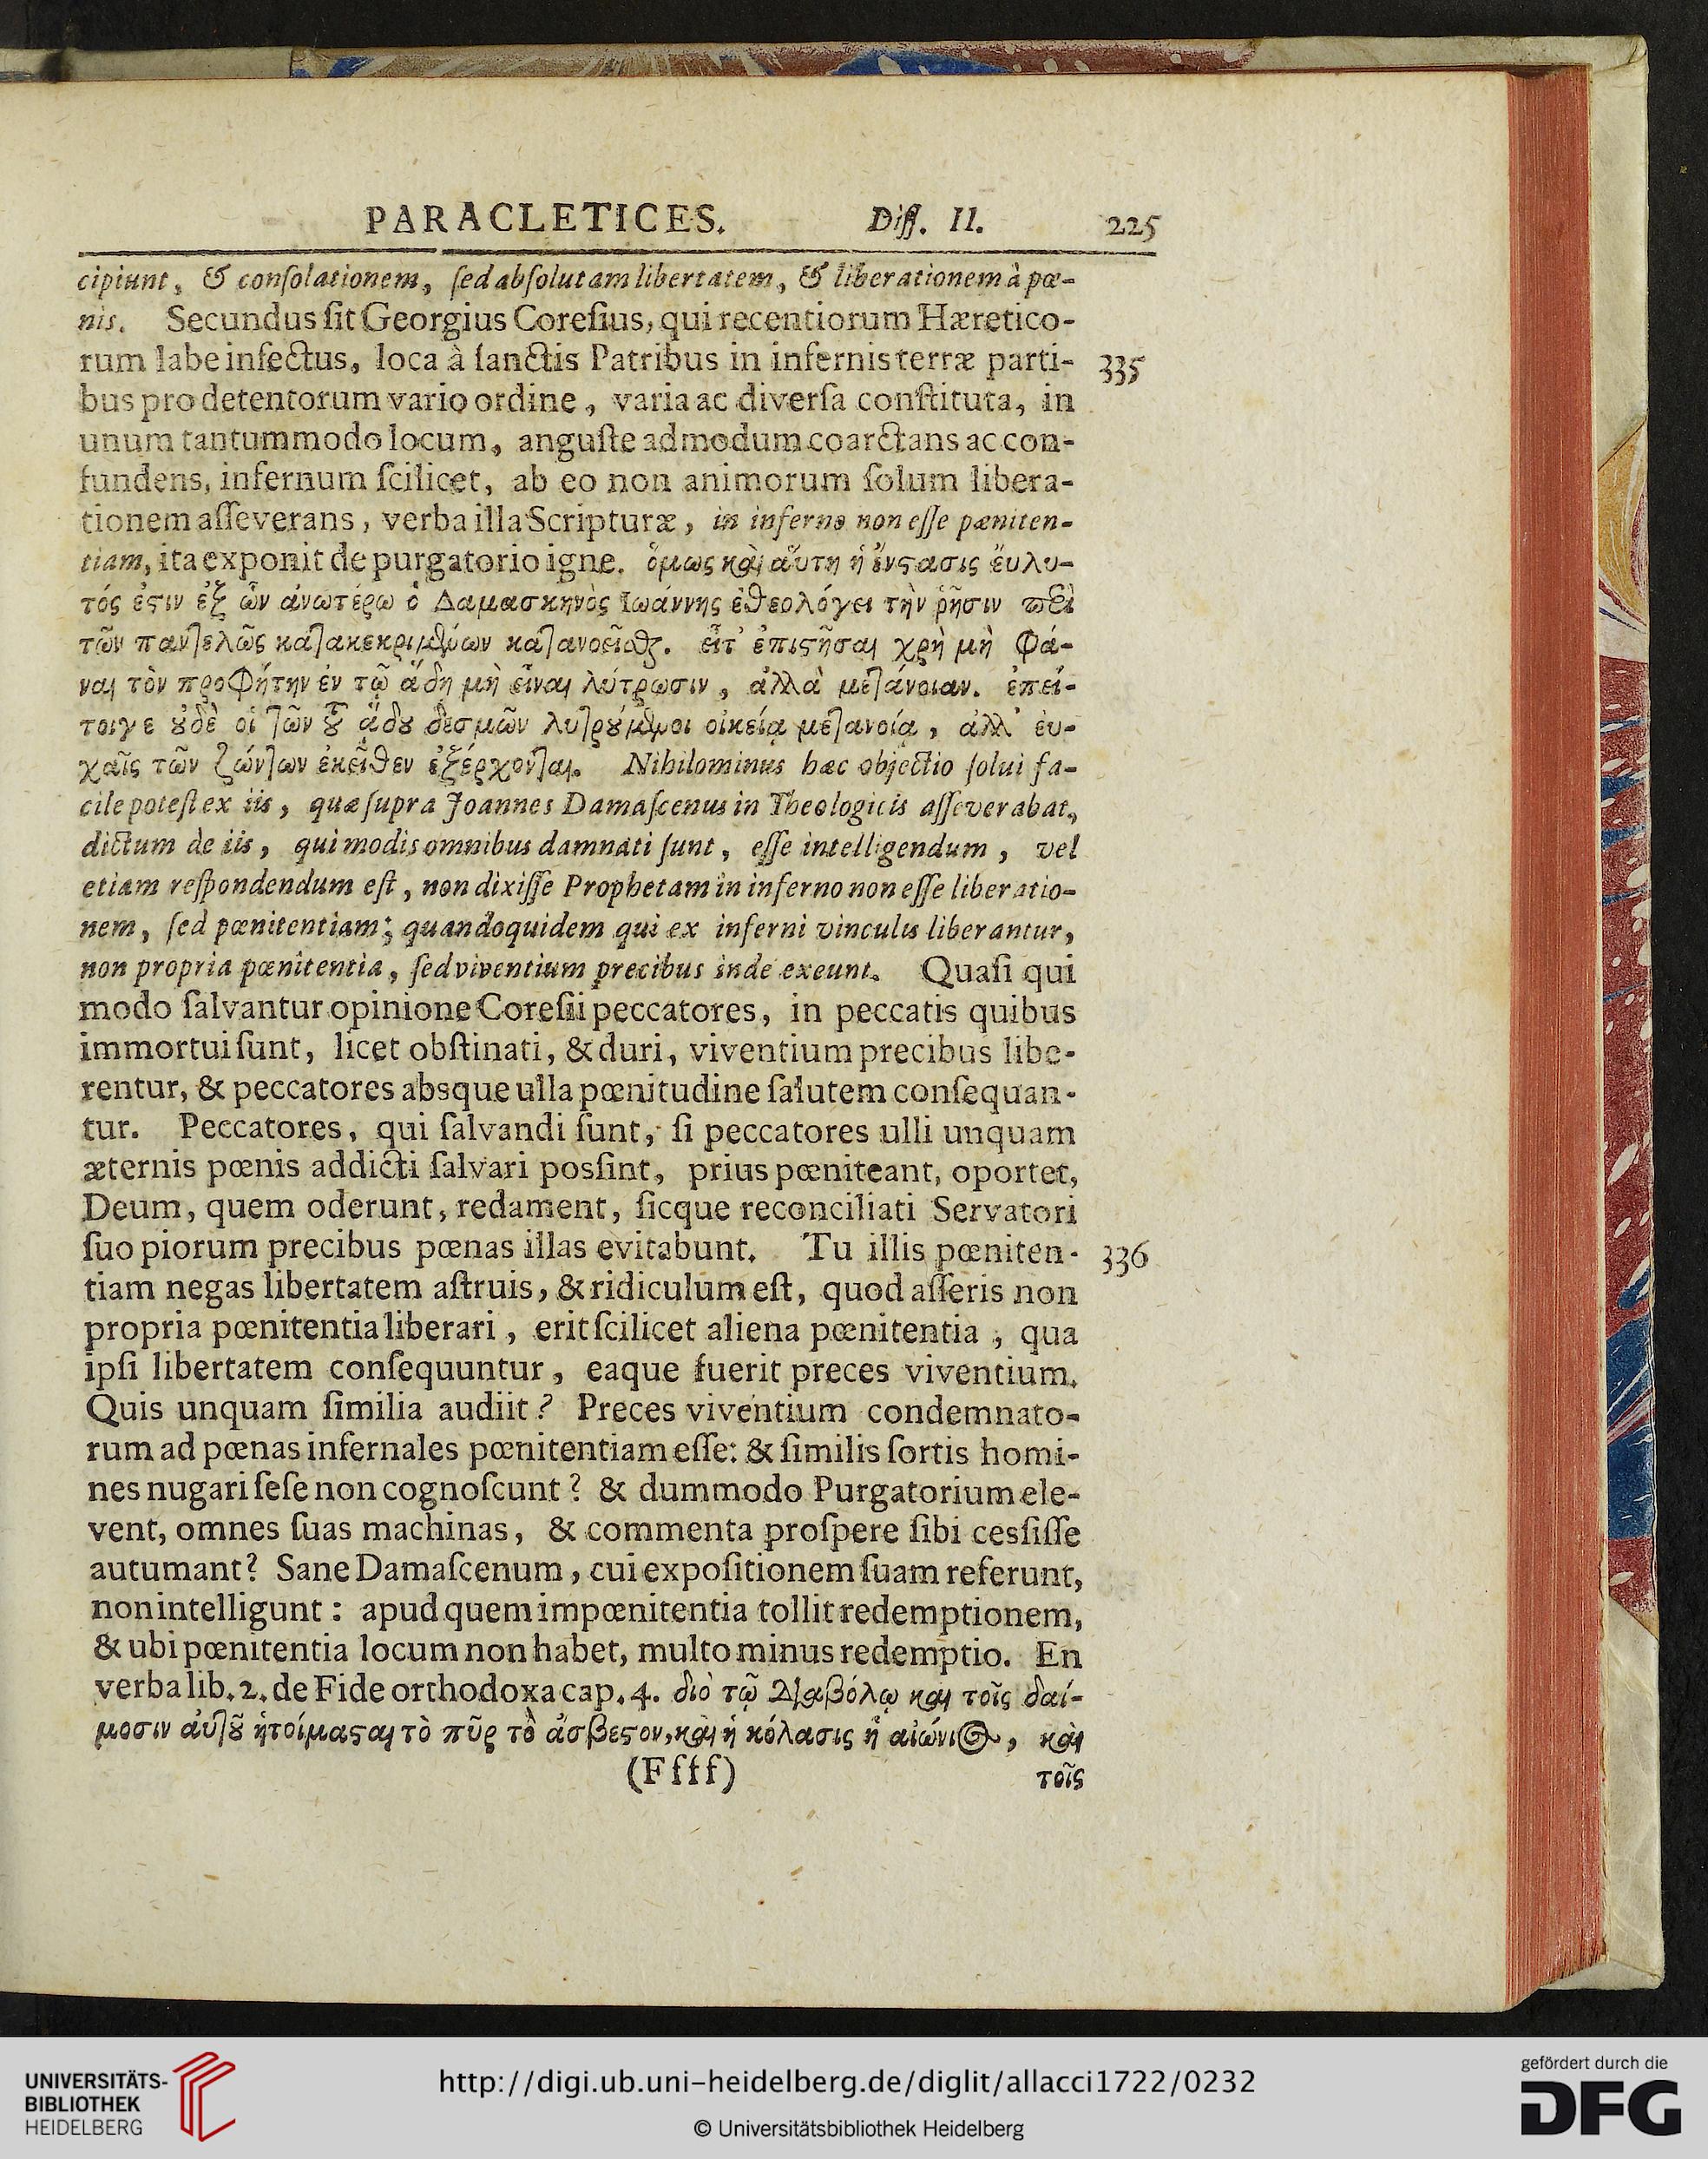 PARACLETICES. Diſſ. II. 225
cipiunt, & conſolationem, ſed abſolutam libertatem, & liberationem à pœ-
nis. Secundus ſit Georgius Coreſius, qui recentiorum Hæretico-
rum labe infectus, loca à ſanctis Patribus in infernis terræ parti- 335
bus pro detentorum vario ordine, varia ac diverſa conſtituta, in
unum tantummodo locum, anguſte admodum coarctans ac con-
fundens, infernum ſcilicet, ab eo non animorum ſolum libera-
tionem aſſeverans, verba illa Scripturæ, in inferno non eſſe pœniten-
tiam, ita exponit de purgatorio igne. ὅμως καὶ αὕτη ἡ ἔνϛασις ἔυλυ-
τός ἐϛιν ἐξ ὧν ἀνωτέρω ὁ Δαμασκηνὸς Ἰωάννης ἐθεολόγει τὴν ῥῆσιν περὶ
τῶν παντελῶς κατακεκριμένων κατανοεῖσθαι. εἶτ᾽ ἐπιϛῆσαι χρὴ μὴ φά-
ναι τὸν προφήτην ἐν τῷ ᾅδη μὴ εἶναι λύτρωσιν, ἀλλὰ μετάνοιαν. ἐπεί-
τοιγε ȣδὲ οἱ τῶν τοῦ ᾅδȣ δεσμῶν λυτρȣ́μενοι οἰκείᾳ μετανοίᾳ, ἀλλ᾽ ἐυ-
χαῖς τῶν ζώντων ἐκεῖθεν ἐξέρχονται. Nihilominus hæc objectio ſolui fa-
cile poteſt ex iis, quæ ſupra Joannes Damaſcenus in Theologicis aſſeverabat,
dictum de iis, qui modis omnibus damnati ſunt, eſſe intelligendum, vel
etiam reſpondendum eſt, non dixiſſe Prophetam in inferno non eſſe liberatio-
nem, ſed pœnitentiam; quandoquidem qui ex inferni vinculis liberantur,
non propria pœnitentia, ſed viventium precibus inde exeunt. Quaſi qui
modo ſalvantur opinione Coreſii peccatores, in peccatis quibus
immortui ſunt, licet obſtinati, & duri, viventium precibus libe-
rentur, & peccatores absque ulla pœnitudine ſalutem conſequan-
tur. Peccatores, qui ſalvandi ſunt, ſi peccatores ulli unquam
æternis pœnis addicti ſalvari posſint, prius pœniteant, oportet,
Deum, quem oderunt, redament, ſicque reconciliati Servatori
ſuo piorum precibus pœnas illas evitabunt. Tu illis pœniten- 336
tiam negas libertatem aſtruis, & ridiculum eſt, quod aſſeris non
propria pœnitentia liberari, erit ſcilicet aliena pœnitentia, qua
ipſi libertatem conſequuntur, eaque fuerit preces viventium.
Quis unquam ſimilia audiit? Preces viventium condemnato-
rum ad pœnas infernales pœnitentiam eſſe: & ſimilis ſortis homi-
nes nugari ſeſe non cognoſcunt? & dummodo Purgatorium ele-
vent, omnes ſuas machinas, & commenta proſpere ſibi cesſiſſe
autumant? Sane Damaſcenum, cui expoſitionem ſuam referunt,
non intelligunt: apud quem impœnitentia tollit redemptionem,
& ubi pœnitentia locum non habet, multo minus redemptio. En
verba lib. 2. de Fide orthodoxa cap. 4. διὸ τῷ Διαβόλῳ καὶ τοῖς δαί-
μοσιν αὐτȣ͂ ἡτοίμαϛαι τὸ πῦρ τὸ ἄσβεϛον, καὶ ἡ κόλασις ἡ αἰώνιος, καὶ
(Ffff) τοῖς
UNIVERSITÄTS-
BIBLIOTHEK
HEIDELBERG
http://digi.ub.uni-heidelberg.de/diglit/allacci1722/0232
© Universitätsbibliothek Heidelberg
gefördert durch die
DFG